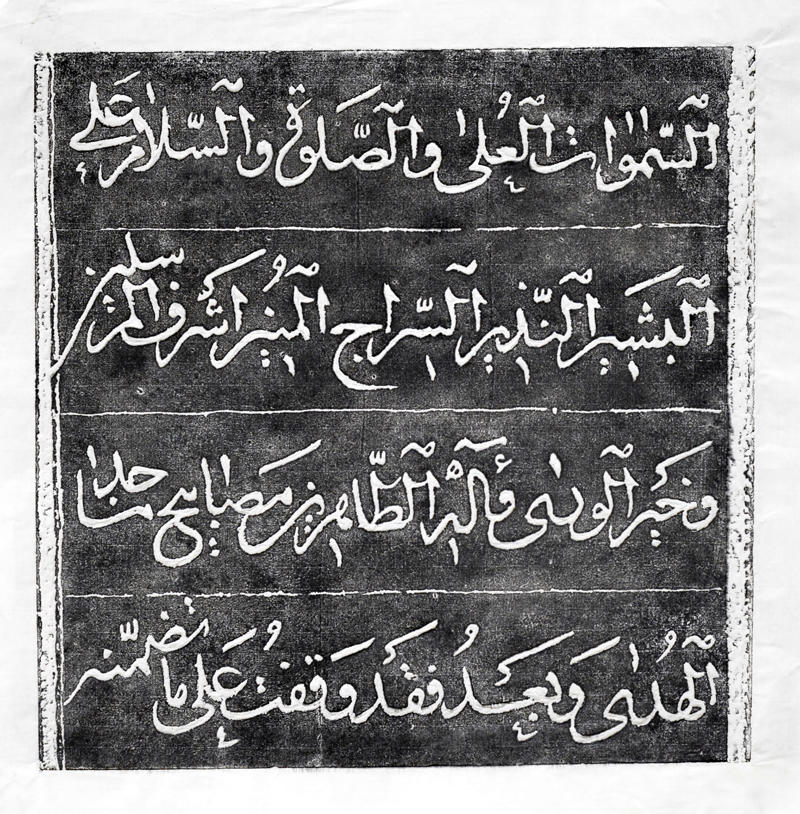 السمٰوات العلى والصلوة والسلام على
البشير النذير السراج المنير اشرف المرسلين
وخير الورى وآله الطاهرين مصابيح
الهدى وبعد فقد وقفت على ما تضمنه